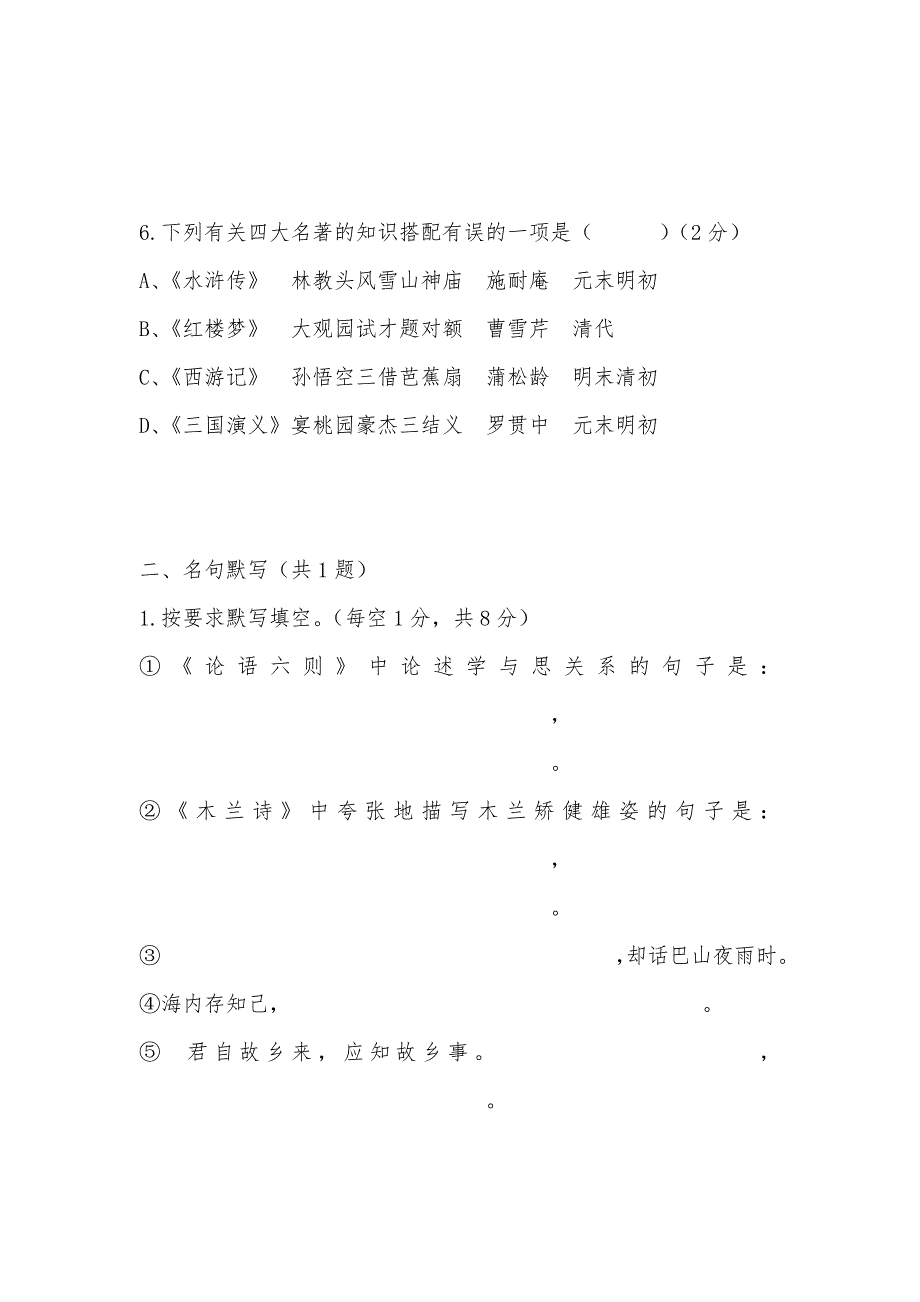 6.下列有关四大名著的知识搭配有误的一项是（　　　）（2分）
A、《水浒传》　林教头风雪山神庙　施耐庵　元末明初
B、《红楼梦》　大观园试才题对额　曹雪芹　清代
C、《西游记》　孙悟空三借芭蕉扇　蒲松龄　明末清初
D、《三国演义》宴桃园豪杰三结义　罗贯中　元末明初
二、名句默写（共1题）
1.按要求默写填空。（每空1分，共8分）
①《论语六则》中论述学与思关系的句子是：
，
。
②《木兰诗》中夸张地描写木兰矫健雄姿的句子是：
，
。
③　　　　　　　　　　，却话巴山夜雨时。
④海内存知己，　　　　　　　　　　。
⑤ 君自故乡来，应知故乡事。　　　　　　，
。